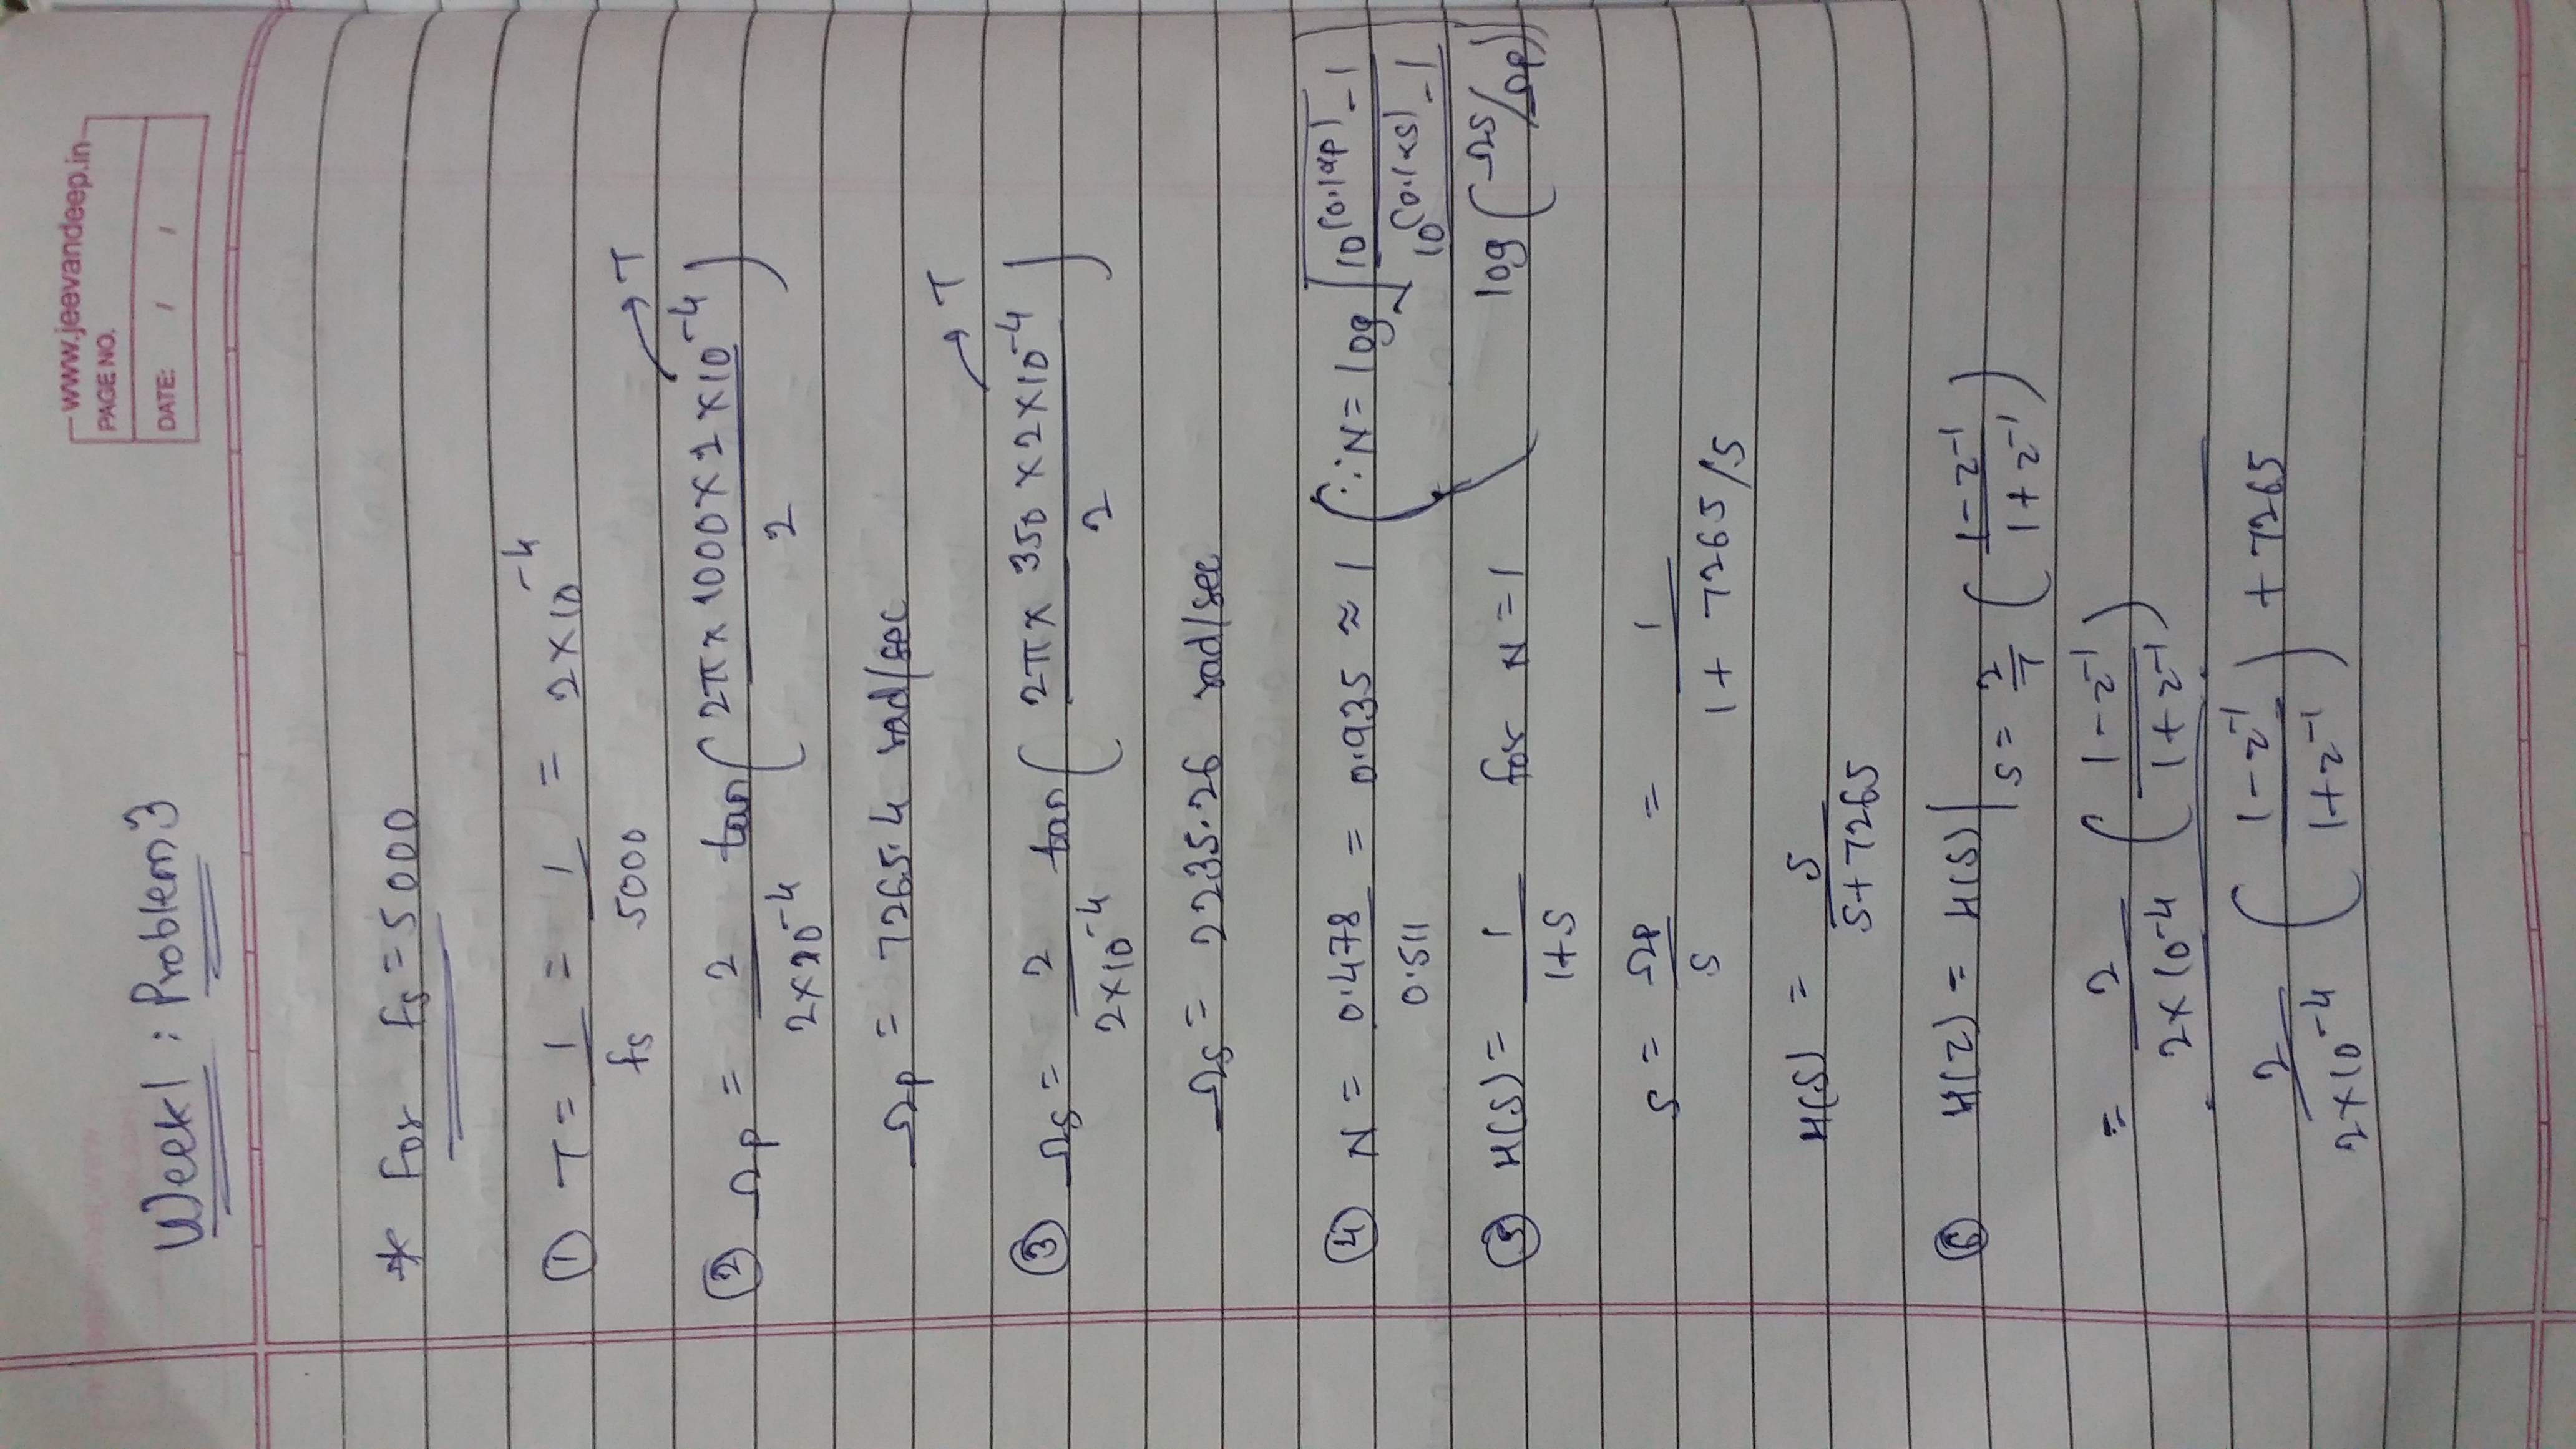 www.jeevandeep.in
PAGE NO.
DATE: / /
Week 1 : Problem 3
* For fs = 5000
① T = 1/fs = 1/5000 = 2×10⁻⁴
② Ωp = 2/(2×10⁻⁴) tan(2π×1000×2×10⁻⁴/2) → T
Ωp = 7265.4 rad/sec
③ Ωs = 2/(2×10⁻⁴) tan(2π×350×2×10⁻⁴/2) → T
Ωs = 2235.26 rad/sec
④ N = 0.478/0.511 = 0.935 ≈ 1 (∵ N = log √((10^(0.1αp) - 1)/(10^(0.1αs) - 1)) / log(Ωs/Ωp))
⑤ H(s) = 1/(1+s) for N = 1
s = Ωp/s = 1/(1 + 7265/s)
H(s) = s/(s+7265)
⑥ H(z) = H(s)| s = 2/T ((1-z⁻¹)/(1+z⁻¹))
= 2/(2×10⁻⁴) ((1-z⁻¹)/(1+z⁻¹))
2/(2×10⁻⁴) ((1-z⁻¹)/(1+z⁻¹)) + 7265